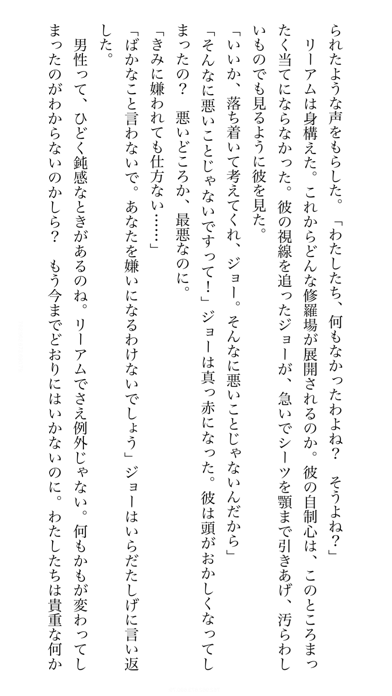 られたような声をもらした。「わたしたち、何もなかったわよね？　そうよね？」
　リーアムは身構えた。これからどんな修羅場が展開されるのか。彼の自制心は、このところまっ
たく当てにならなかった。彼の視線を追ったジョーが、急いでシーツを顎まで引きあげ、汚らわし
いものでも見るように彼を見た。
「いいか、落ち着いて考えてくれ、ジョー。そんなに悪いことじゃないんだから」
「そんなに悪いことじゃないですって！」ジョーは真っ赤になった。彼は頭がおかしくなってし
まったの？　悪いどころか、最悪なのに。
「きみに嫌われても仕方ない……」
「ばかなこと言わないで。あなたを嫌いになるわけないでしょう」ジョーはいらだたしげに言い返
した。
　男性って、ひどく鈍感なときがあるのね。リーアムでさえ例外じゃない。何もかもが変わってし
まったのがわからないのかしら？　もう今までどおりにはいかないのに。わたしたちは貴重な何か